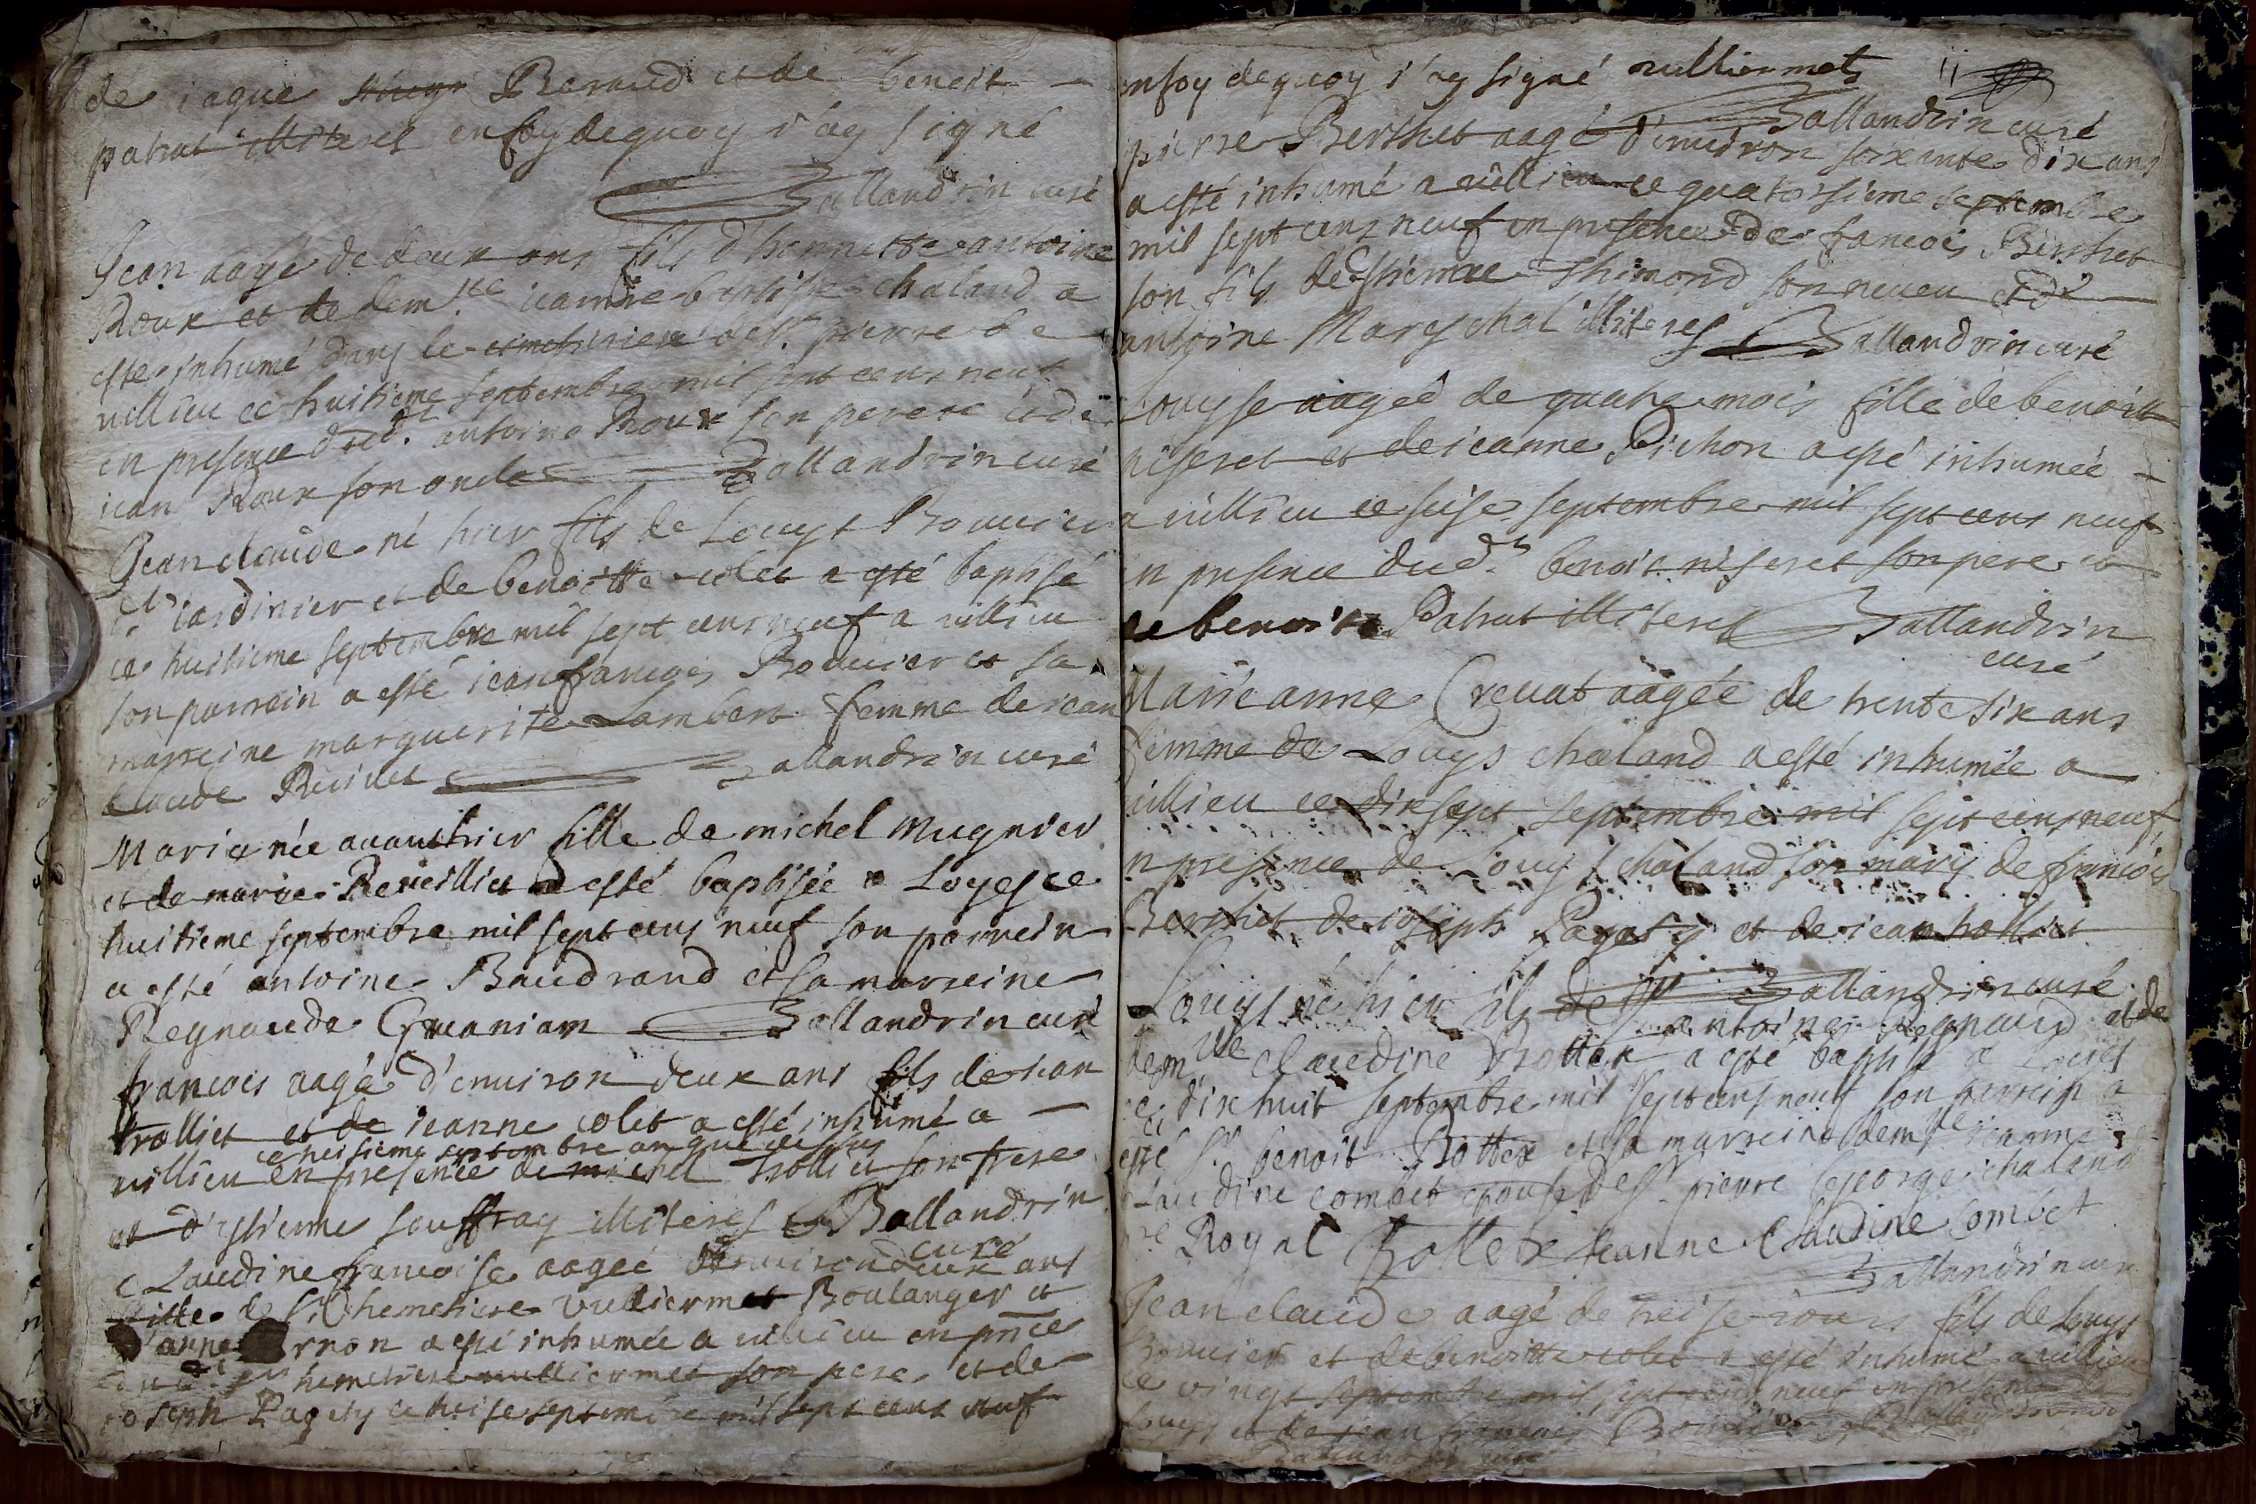 de iaque Beraud et de benoit
patrat illiteres en foy de quoy i'ay signé
Ballandrin curé
Jean aagé de deux ans fils d'honneste antoine
Roux et de dem.lle ieanne baptiste chaland a
esté inhumé dans le cimetiere de St. pierre de
villieu ce huitieme septembre mil sept cens neuf
en presence dud.t antoine Roux son pere et de
iean Roux son oncle Ballandrin curé
Jean claude né hier fils de Louys Bouvier
iardinier et de benoitte colet a esté baptisé
ce huitieme septembre mil sept cens neuf a villieu
son parrein a esté iean francois Bouvier et sa
marreine marguerite Lambert femme de iean
claude Ballandrin curé
Marie née avanthier fille de michel mugnier
et de marie Reveilliet a esté baptisée a Loyes ce
huitieme septembre mil sept cens neuf son parrein
a esté antoine Baudrand et sa marreine
Regnaude Ballandrin curé
francois aagé d'environ deux ans fils de iean
trolliet et de ieanne colet a esté inhumé a
ce neisieme septembre an que dessus
villieu en presence de michel Trolliet son frere
et d'estienne souffray illiteres Ballandrin
curé
Claudine francoise aagée d'environ deux ans
fille de Sr. hemetiere vulliermet Boulanger et
d'anne a esté inhumée a villieu en pnce
dud.t Sr hemetiere vulliermet son pere et de
ioseph Pagety ce treise septembre mil sept cens neuf
11
en foy de quoy i'ay signé vulliermet
Ballandrin curé
pierre Berthet aagé d'environ soixante dix ans
a esté inhumé a villieu ce quatorsieme septembre
mil sept cens neuf en presence de francois Berthet
son fils d'estienne thimond son neveu et d'
antoine Mareschal illiteres Ballandrin curé
Louyse aagée de quatre mois fille de benoit
niseret et de ieanne Pichon a esté inhumée
a villieu ce seise septembre mil sept cens neuf
en presence dud.t benoit niseret son pere et
de benoit Patrat illiteres Ballandrin
curé
Marie anne Crevat aagée de trente six ans
femme de Louys chaland a esté inhumée a
villieu ce dixsept septembre mil sept cens neuf
en presence de Louys chaland son mary de francois
Berthet de ioseph Pagety et de iean trolliet
Ballandrin curé
Louys né hier fils de Sr antoine Regnaud et de
dem.lle claudine Bottex a esté baptisé a Loyes
ce dixhuit septembre mil sept cens neuf son parrein a
esté Sr. benoit Bottex et sa marreine dem.lle ieanne
claudine combet epouse de Sr. pierre George chaland
Royal Bottex Jeanne Claudine Combet
Ballandrin curé
Jean claude aagé de treise iours fils de Louys
Bouvier et de benoitte colet a esté inhumé a villieu
ce vingt septembre mil sept cens neuf en presence de
Louys et de iean francois Bouvier